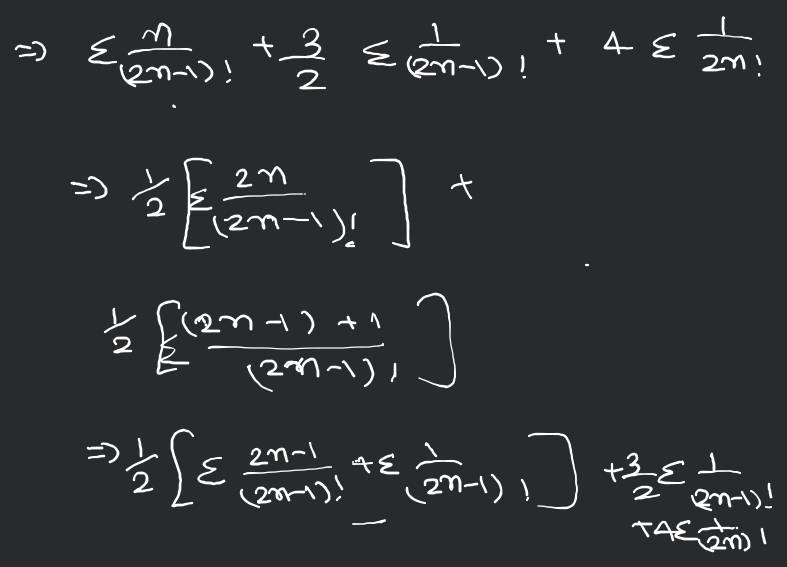 ⇒ Σ n/(2n-1)! + 3/2 Σ 1/(2n-1)! + 4 Σ 1/2n!
⇒ 1/2 [Σ 2n/(2n-1)!] +
1/2 [Σ (2n-1)+1/(2n-1)!]
⇒ 1/2 [Σ 2n-1/(2n-1)! + Σ 1/(2n-1)!] + 3/2 Σ 1/(2n-1)!
+4Σ 1/(2n)!